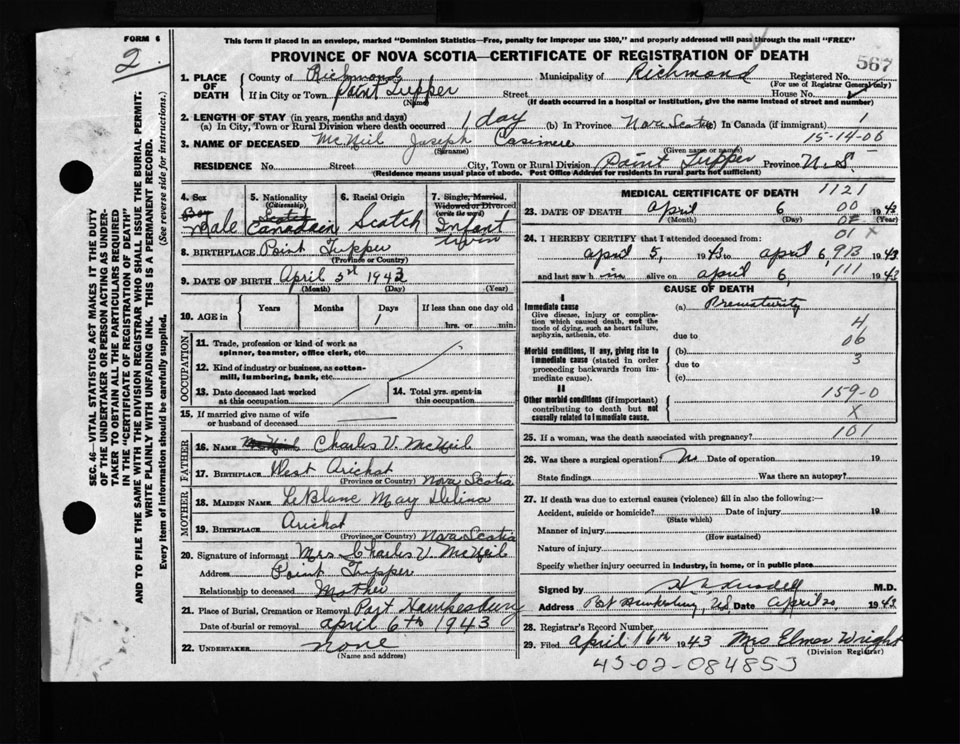 FORM 6
2.
This form if placed in an envelope, marked "Dominion Statistics—Free, penalty for improper use $300," and properly addressed will pass through the mail "FREE"
PROVINCE OF NOVA SCOTIA—CERTIFICATE OF REGISTRATION OF DEATH
567
1. PLACE OF DEATH County of Richmond Municipality of Richmond Registered No.
(For use of Registrar General only)
If in City or Town Point Tupper Street House No.
(Name) (If death occurred in a hospital or institution, give the name instead of street and number)
2. LENGTH OF STAY (in years, months and days)
(a) In City, Town or Rural Division where death occurred 1 day (b) In Province Nova Scotia In Canada (if immigrant) 1
15-14-06
3. NAME OF DECEASED McNeil Joseph Casimere
(Surname) (Given name or names)
RESIDENCE No. Street City, Town or Rural Division Point Tupper Province N.S.
(Residence means usual place of abode. Post Office Address for residents in rural parts not sufficient)
4. Sex Male
5. Nationality (Citizenship) Scotch Canadain
6. Racial Origin Scotch
7. Single, Married, Widowed or Divorced (write the word) Infant twin
8. BIRTHPLACE Point Tupper
(Province or Country)
9. DATE OF BIRTH April 5th 1943
(Month) (Day) (Year)
10. AGE IN Years Months Days If less than one day old
1 hrs. or min.
OCCUPATION
11. Trade, profession or kind of work as spinner, teamster, office clerk, etc.
12. Kind of industry or business, as cotton-mill, lumbering, bank, etc.
13. Date deceased last worked at this occupation
14. Total yrs. spent in this occupation
15. If married give name of wife or husband of deceased
FATHER
16. NAME McNeil Charles V. McNeil
17. BIRTHPLACE West Arichat Nova Scotia
(Province or Country)
MOTHER
18. MAIDEN NAME LeBlanc May Delina
19. BIRTHPLACE Arichat Nova Scotia
(Province or Country)
20. Signature of informant Mrs Charles V. McNeil
Address Point Tupper
Relationship to deceased Mother
21. Place of Burial, Cremation or Removal Port Hawkesbury
Date of burial or removal April 6th 1943
22. UNDERTAKER none
(Name and address)
MEDICAL CERTIFICATE OF DEATH 1121
23. DATE OF DEATH April 6 00 1943
(Month) (Day) (Year)
24. I HEREBY CERTIFY that I attended deceased from: 01 X
April 5, 1943 to April 6 913 1943
and last saw him alive on April 6, 111 1943
CAUSE OF DEATH
I
Immediate cause (a) Prematurity
Give disease, injury or complication which caused death, not the mode of dying, such as heart failure, asphyxia, asthenia, etc.
due to
4
06
3
Morbid conditions, if any, giving rise to immediate cause (stated in order proceeding backwards from immediate cause).
(b)
due to
(c)
II
Other morbid conditions (if important) contributing to death but not causally related to immediate cause.
159-0
X
25. If a woman, was the death associated with pregnancy? 101
26. Was there a surgical operation? No Date of operation 19
State findings Was there an autopsy?
27. If death was due to external causes (violence) fill in also the following:—
Accident, suicide or homicide? Date of injury 19
(State which)
Manner of injury
(How sustained)
Nature of injury
Specify whether injury occurred in industry, in home, or in public place
Signed by M.D.
Address Port Hawkesbury, N.S. Date April 20 1943
28. Registrar's Record Number
29. Filed April 16th 1943 Mrs Elmer Wright
(Division Registrar)
43-02-084853
SEC. 46—VITAL STATISTICS ACT MAKES IT THE DUTY OF THE UNDERTAKER OR PERSON ACTING AS UNDERTAKER TO OBTAIN ALL THE PARTICULARS REQUIRED IN THE "CERTIFICATE OF REGISTRATION OF DEATH" AND TO FILE THE SAME WITH THE DIVISION REGISTRAR WHO SHALL ISSUE THE BURIAL PERMIT.
WRITE PLAINLY WITH UNFADING INK. THIS IS A PERMANENT RECORD.
Every item of information should be carefully supplied. (See reverse side for instructions.)